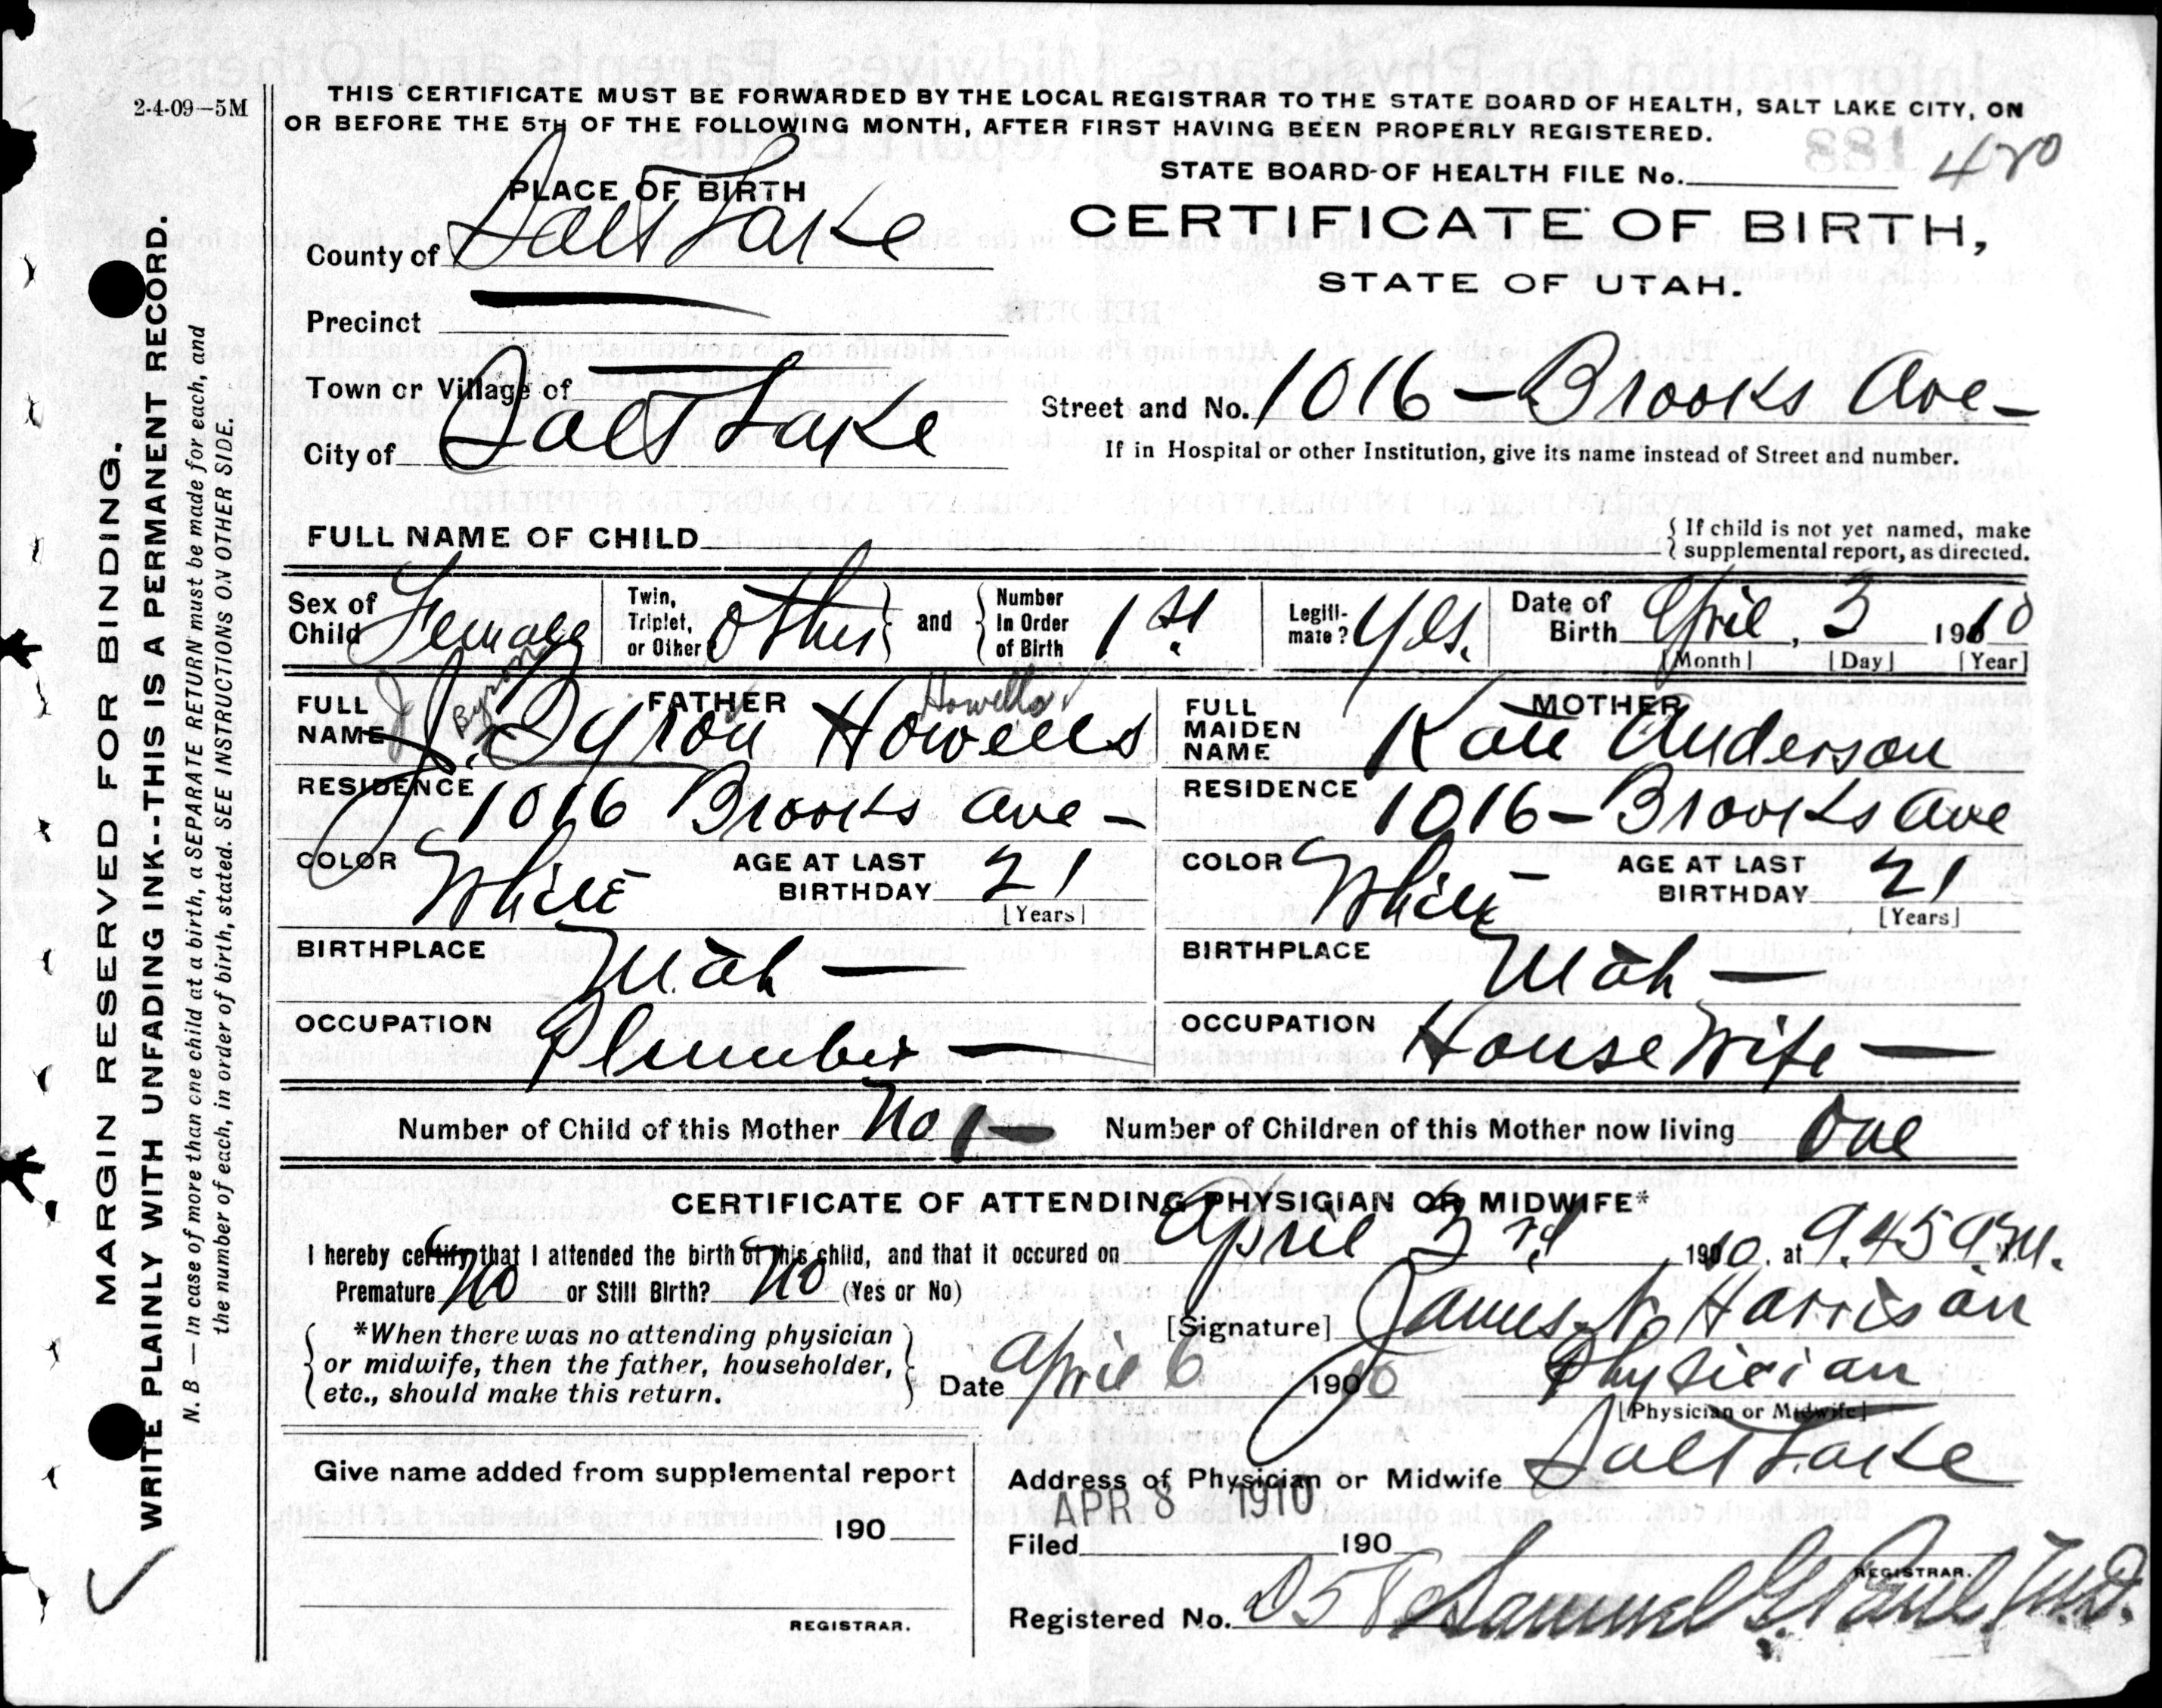 2-4-09—5M
THIS CERTIFICATE MUST BE FORWARDED BY THE LOCAL REGISTRAR TO THE STATE BOARD OF HEALTH, SALT LAKE CITY, ON
OR BEFORE THE 5TH OF THE FOLLOWING MONTH, AFTER FIRST HAVING BEEN PROPERLY REGISTERED.
STATE BOARD OF HEALTH FILE No.
PLACE OF BIRTH
CERTIFICATE OF BIRTH,
STATE OF UTAH.
County of Salt Lake
Precinct
Town or Village of
Street and No. 1016 - Brooks Ave -
City of Salt Lake
If in Hospital or other Institution, give its name instead of Street and number.
FULL NAME OF CHILD
{ If child is not yet named, make
supplemental report, as directed.
Sex of Child Female
Twin, Triplet, or Other? Other } and { Number In Order of Birth 1st.
Legitimate? Yes.
Date of Birth April, 3 1910
[Month] [Day] [Year]
FATHER
FULL NAME J. Byron Howells
J Byron Howells
RESIDENCE 1016 Brooks Ave -
COLOR White
AGE AT LAST BIRTHDAY 21
[Years]
BIRTHPLACE Utah —
OCCUPATION Plumber —
MOTHER
FULL MAIDEN NAME Kate Anderson
RESIDENCE 1016 - Brooks Ave
COLOR White
AGE AT LAST BIRTHDAY 21
[Years]
BIRTHPLACE Utah —
OCCUPATION House Wife —
Number of Child of this Mother No 1 —
Number of Children of this Mother now living One
CERTIFICATE OF ATTENDING PHYSICIAN OR MIDWIFE*
I hereby certify that I attended the birth of this child, and that it occured on April 3rd, 1910. at 9.45 a.M.
Premature No or Still Birth? No (Yes or No)
{ *When there was no attending physician
or midwife, then the father, householder,
etc., should make this return. }
[Signature] James N Harrison
Date April 6 1910
Physician
[Physician or Midwife]
Give name added from supplemental report
190
REGISTRAR.
Address of Physician or Midwife Salt Lake
APR 8 1910
Filed 190
REGISTRAR.
Registered No. Samuel G. Paul M.D.
MARGIN RESERVED FOR BINDING.
WRITE PLAINLY WITH UNFADING INK--THIS IS A PERMANENT RECORD.
N. B.—In case of more than one child at a birth, a SEPARATE RETURN must be made for each, and
the number of each, in order of birth, stated. SEE INSTRUCTIONS ON OTHER SIDE.